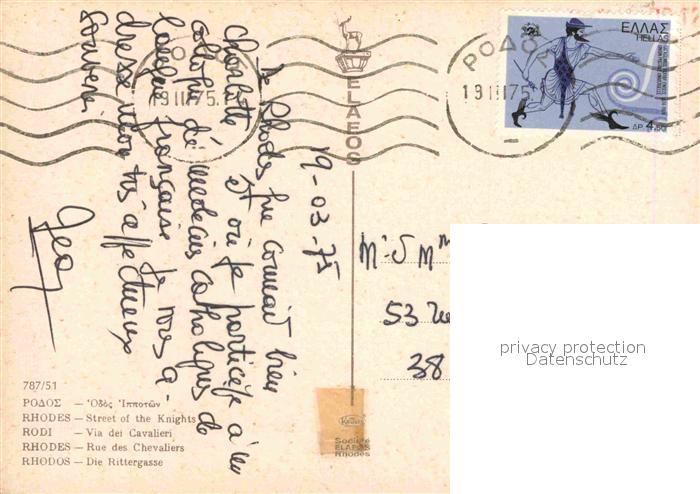 19-03-75
De Rhodes, que connaît bien
Charlotte et où je participe à un
colloque de médecins catholiques de
langue française je vous a-
dresse mon très affectueux
souvenir
Geo
Mr & Mme
53
38
ΡΟΔΟΣ
19 III 75
ΡΟΔΟΣ
19 III 75
ΕΛΛΑΣ
HELLAS
ΔΡ 4.50
ELAFOS
787/51
ΡΟΔΟΣ — Ὁδὸς Ἱπποτῶν
RHODES — Street of the Knights
RODI — Via dei Cavalieri
RHODES — Rue des Chevaliers
RHODOS — Die Rittergasse
Société
ELAFOS
Rhodes
privacy protection
Datenschutz